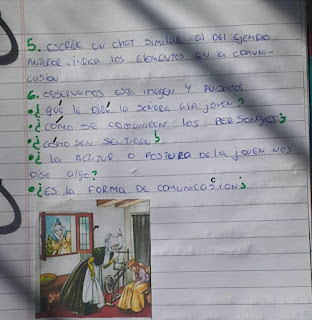 5. ESCRIBE UN CHAT SIMILAR AL DEL EJEMPLO
ANTERIOR. INDICA LOS ELEMENTOS EN LA COMUNI-
CUSION
6. OBSERVAMOS ESTA IMAGEN Y PENSAMOS
•¿QUÉ LE DICE LA SEÑORA A LA JOVEN?
•¿CÓMO SE COMUNICAN LOS PERSONAJES?
•¿CÓMO SEN SENTIRAN?
•¿LA ACTITUD O POSTURA DE LA JOVEN NOS
DISE ALGO?
•¿ES LA FORMA DE COMUNICACION?